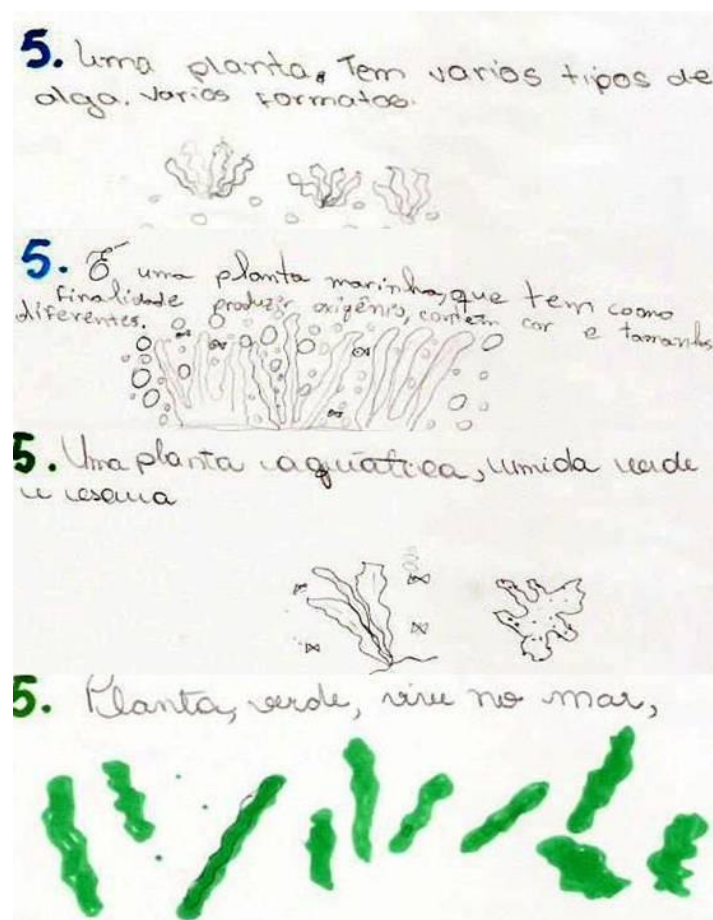 5. Uma planta. Tem varios tipos de
alga. varios formatos.
5. É uma planta marinha, que tem como
finalidade produzir oxigênio, contém cor e tamanhos
diferentes.
5. Uma planta aquática, umida verde
e escura
5. Planta, verde, vive no mar,